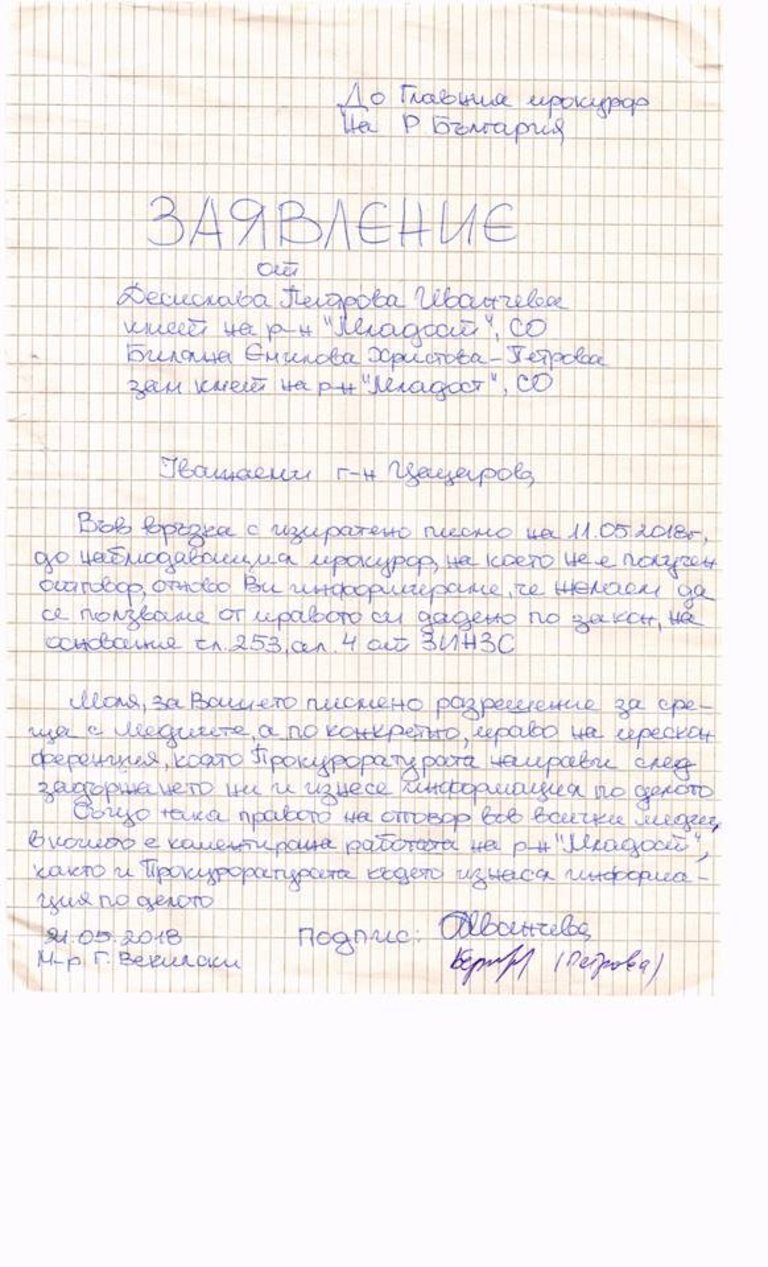 До Главния прокурор
на Р България
ЗАЯВЛЕНИЕ
от
Десислава Петрова Иванчева
кмет на р-н "Младост", СО
Биляна Емилова Христова-Петрова
зам кмет на р-н "Младост", СО
Уважаеми г-н Цацаров,
Във връзка с изпратено писмо на 11.05.2018г.,
до наблюдаващия прокурор, на което не е получен
отговор, отново Ви информираме, че желаем да
се ползваме от правото си дадено по закон, на
основание чл. 253, ал. 4 от ЗИНЗС
Моля, за Вашето писмено разрешение за сре-
ща с Медиите, а по конкретно, право на прескон
ференция, която Прокуроратурата направи след
задържането ни и изнесе информация по делото
Също така правото на отговор във всички медии,
в които е коментирана работата на р-н "Младост",
както и Прокуроратурата където изнася информа-
ция по делото
21.05.2018 Подпис: Иванчева
М-р Г. Векилски (Петрова)